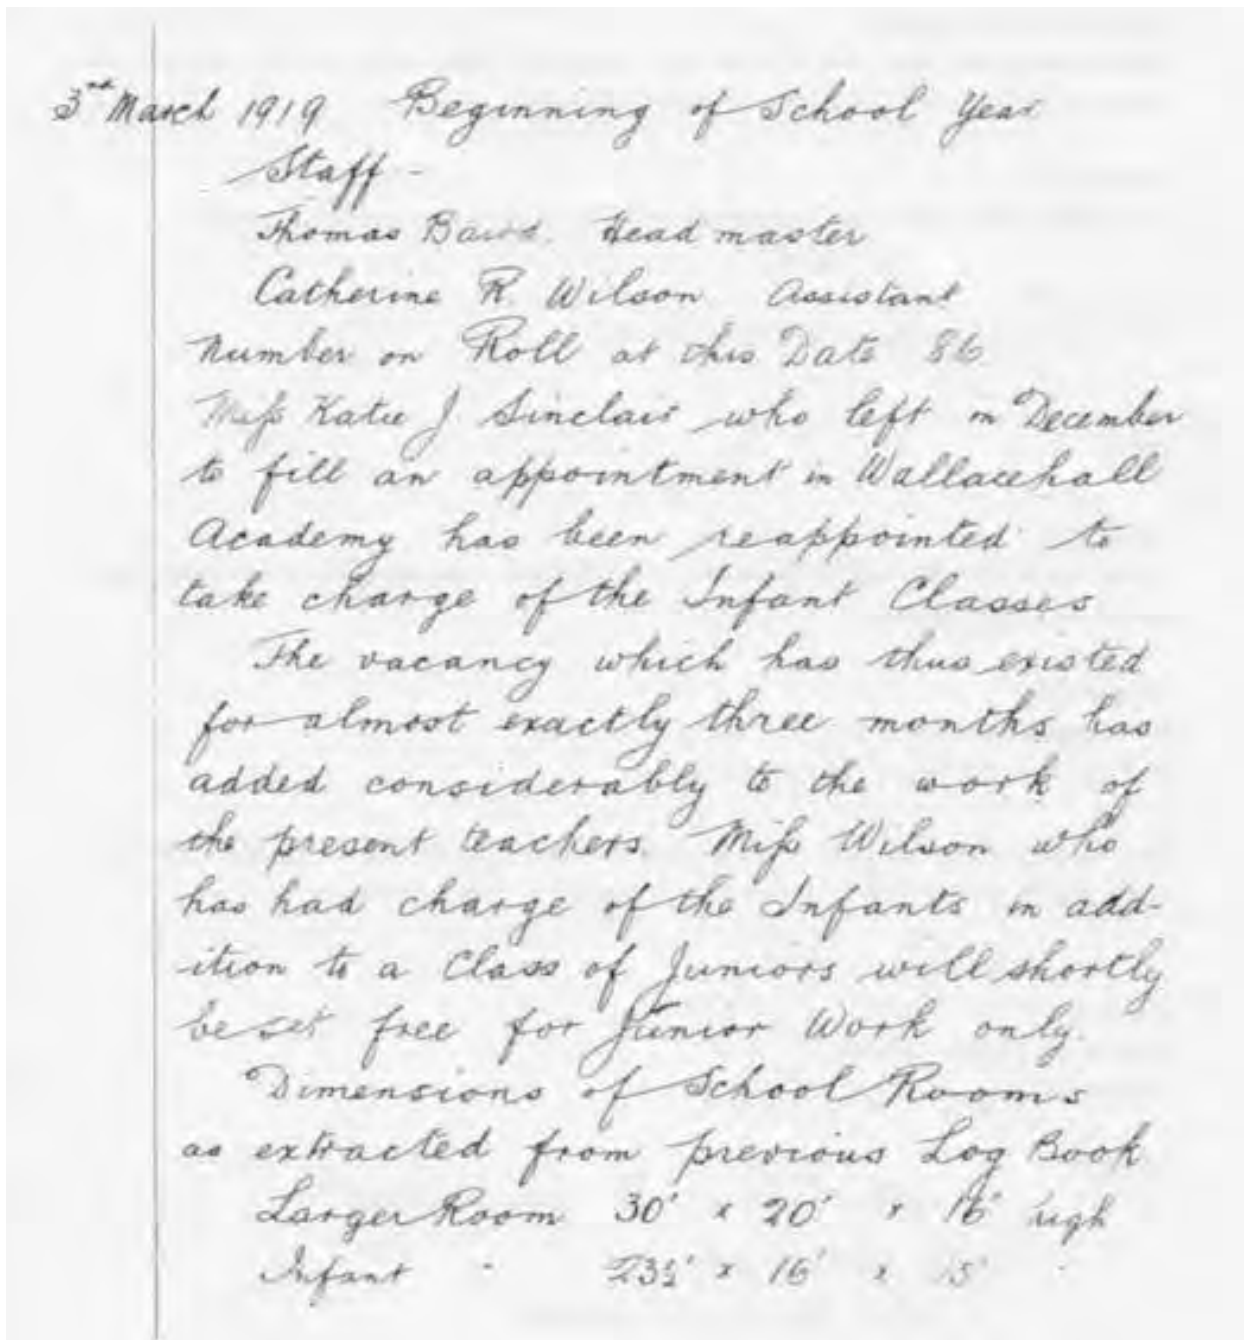 3rd March 1919 Beginning of School Year
Staff -
Thomas Baird. Head master
Catherine R. Wilson Assistant
Number on Roll at this Date 86
Miss Katie J. Sinclair who left in December
to fill an appointment in Wallacehall
Academy has been reappointed to
take charge of the Infant Classes
The vacancy which has thus existed
for almost exactly three months has
added considerably to the work of
the present teachers. Miss Wilson who
has had charge of the Infants in add-
ition to a Class of Juniors will shortly
be set free for Junior Work only.
Dimensions of School Rooms
as extracted from previous Log Book
Larger Room 30' x 20' x 16' high
Infant " 23½' x 16' x 15' "